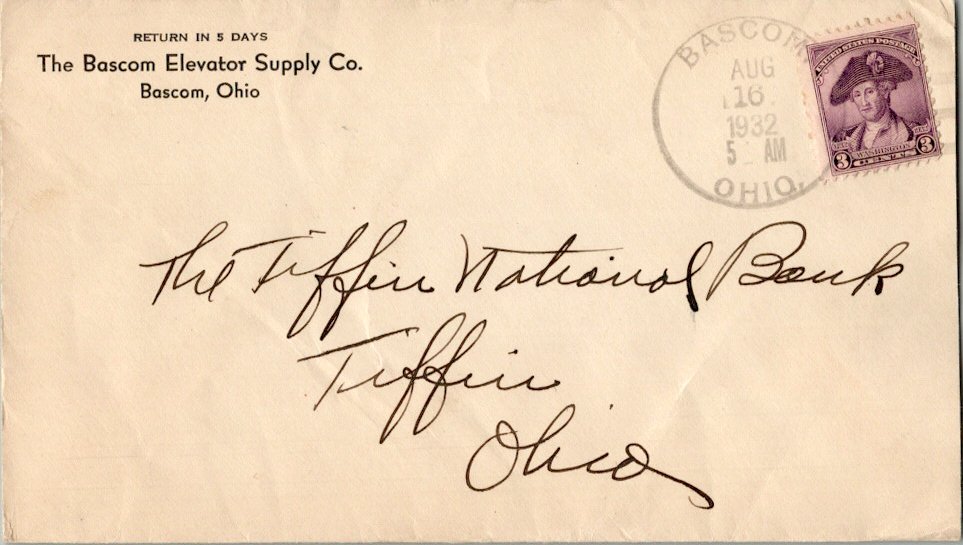 RETURN IN 5 DAYS
The Bascom Elevator Supply Co.
Bascom, Ohio
BASCOM
AUG
16
1932
5 AM
OHIO.
UNITED STATES POSTAGE
WASHINGTON
3 CENTS 3
The Tiffin National Bank
Tiffin
Ohio